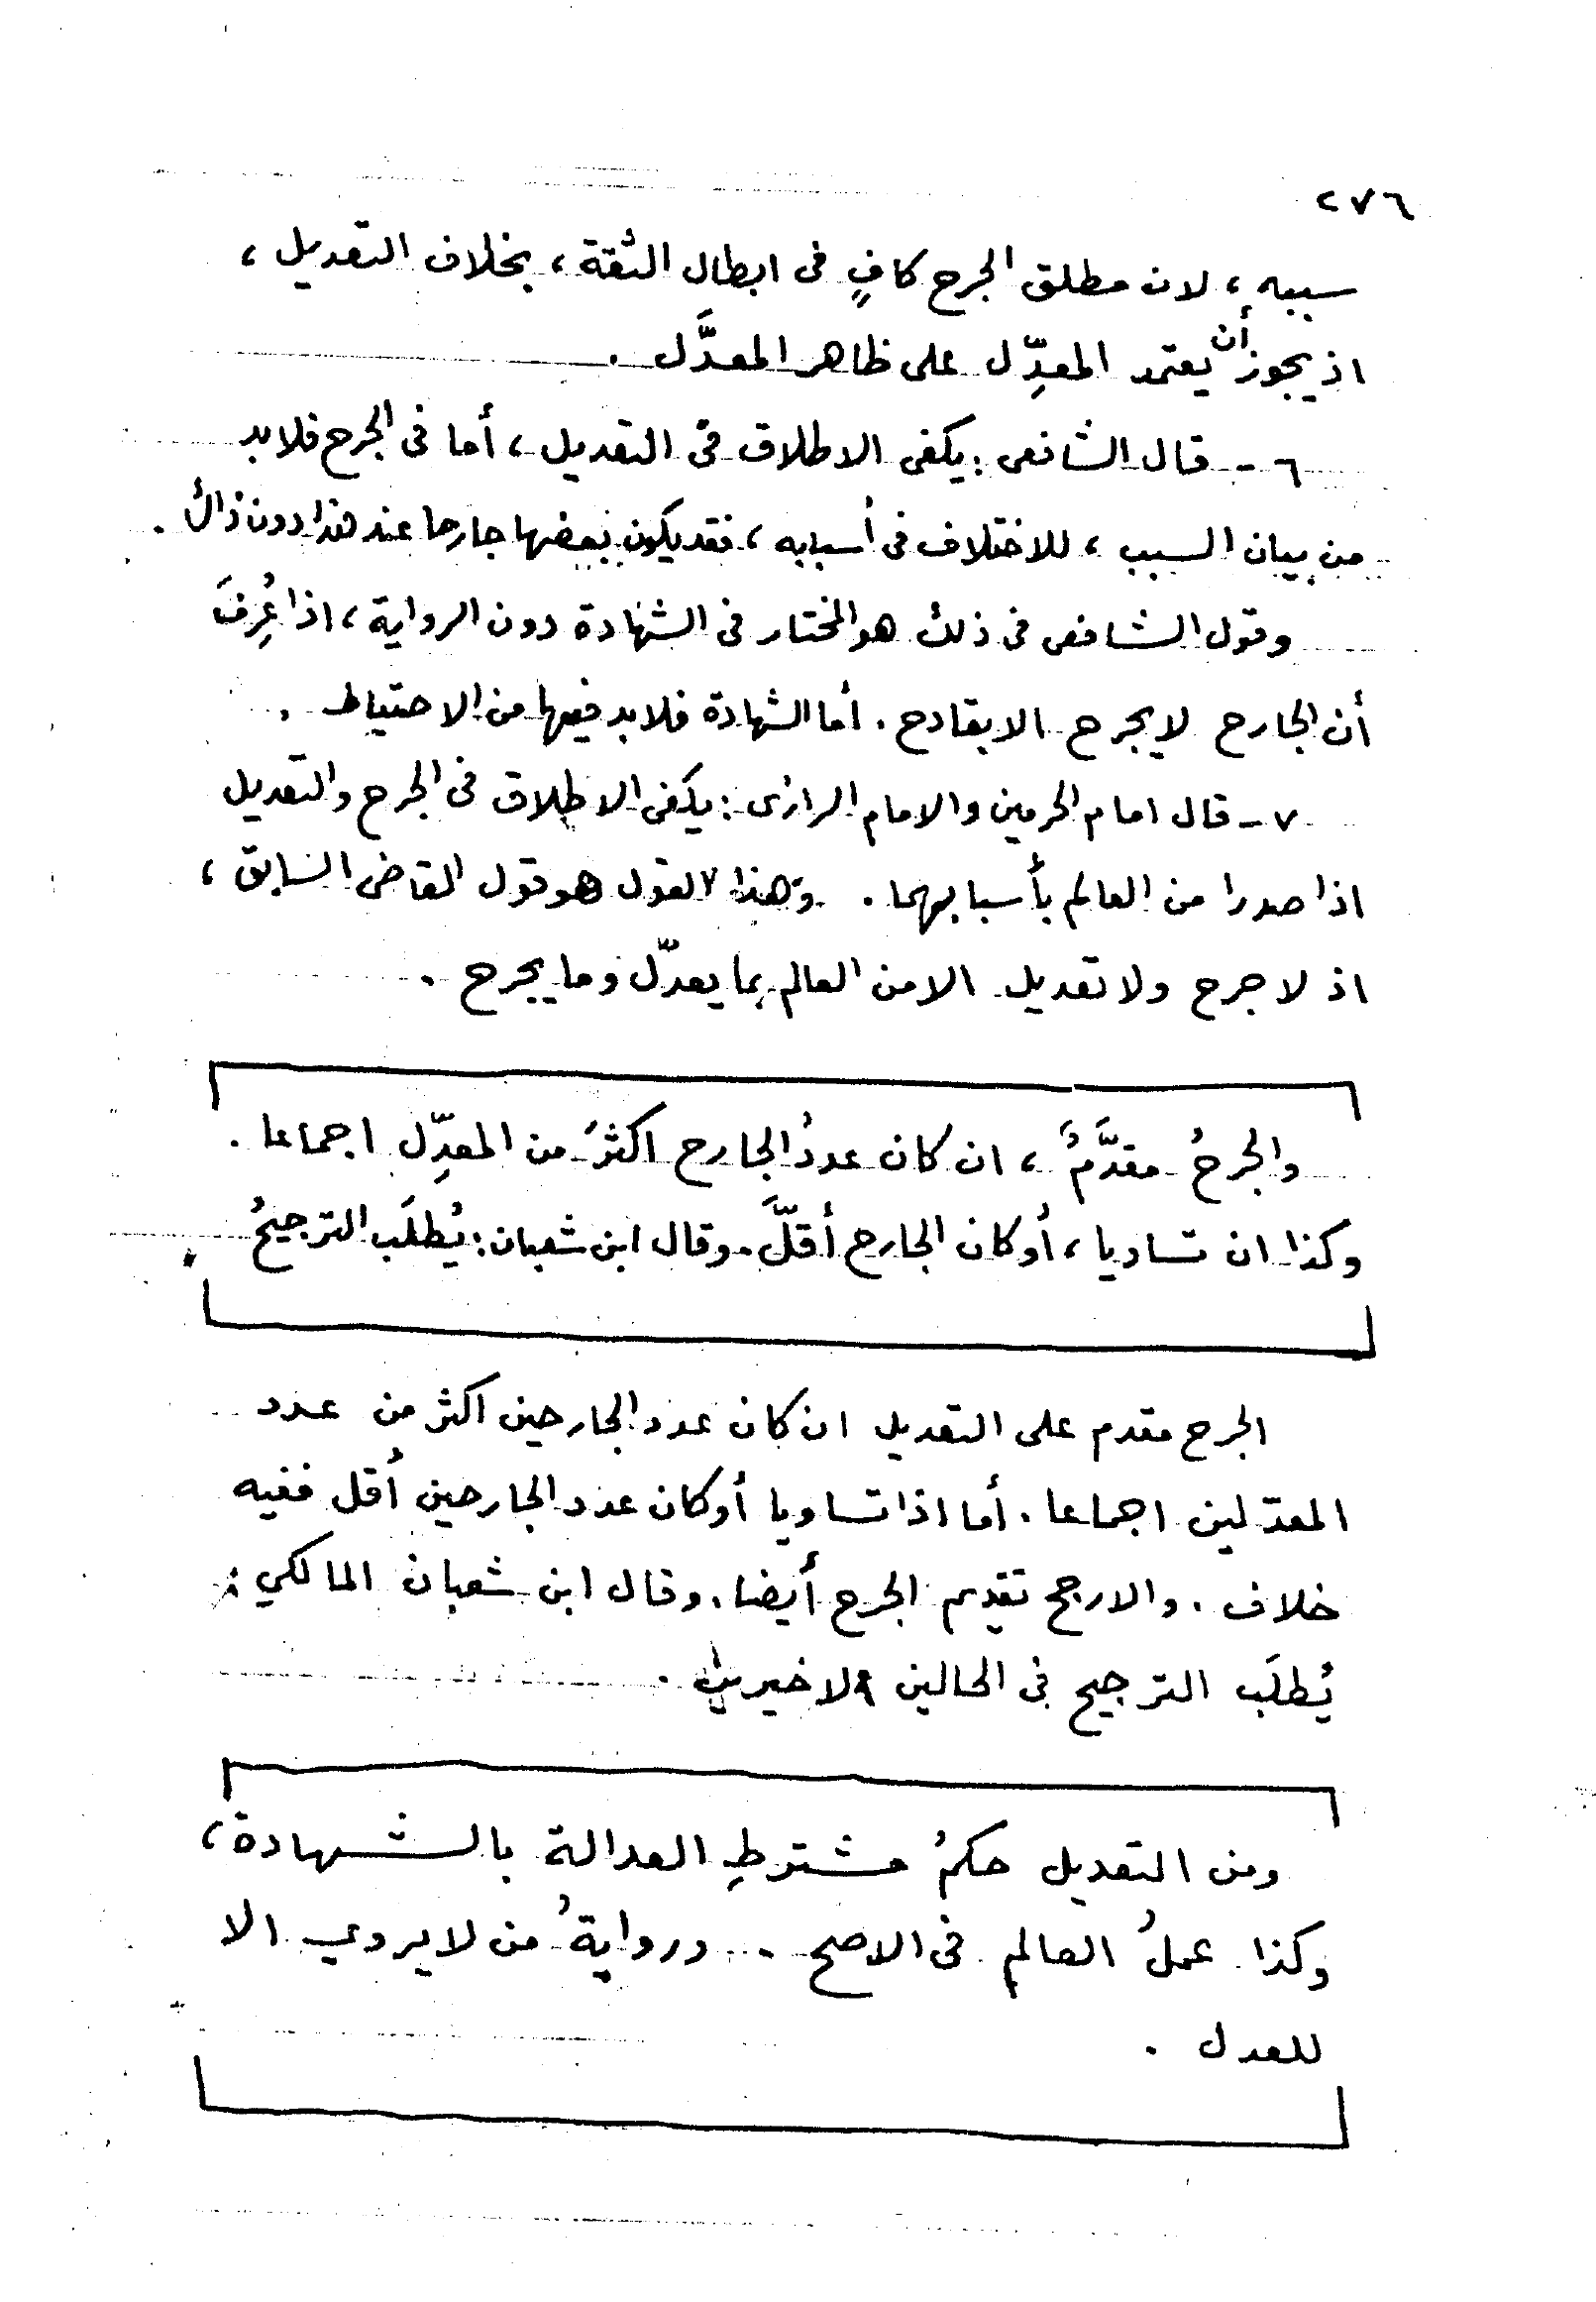 ٢٧٦
سببه، لان مطلق الجرح كافٍ فى ابطال الثقة، بخلاف التعديل،
اذ يجوز أن يعتمد المعدِّل على ظاهر المعدَّل .
٦ - قال الشافعى : يكفى الاطلاق فى التعديل، أما فى الجرح فلا بد
من بيان السبب، للاختلاف فى أسبابه، فقد يكون بعضها جارحا عند هذا دون ذاك .
وقول الشافعى فى ذلك هو المختار فى الشهادة دون الرواية، اذا عُرِفَ
أن الجارح لا يجرح الا بقادح . أما الشهادة فلا بد فيها من الاحتياط .
٧ - قال امام الحرمين والامام الرازى : يكفى الاطلاق فى الجرح والتعديل
اذا صدرا من العالم بأسبابهما . وهذا القول هو قول القاضى السابق،
اذ لا جرح ولا تعديل الا من العالم بما يعدّل وما يجرح .
والجرحُ مقدَّمٌ، ان كان عددُ الجارح اكثرَ من المعدِّل اجماعا .
وكذا ان تساويا، أو كان الجارح أقلَّ . وقال ابن شعبان : يُطلَب الترجيحُ
الجرح مقدم على التعديل ان كان عدد الجارحين اكثر من عدد
المعدّلين اجماعا . أما اذا تساويا أو كان عدد الجارحين أقل ففيه
خلاف . والارجح تقديم الجرح أيضا . وقال ابن شعبان المالكي :
يُطلَب الترجيح فى الحالين الاخيرين .
ومن التعديل حكمُ مشترطِ العدالة بالشهادة،
وكذا عملُ العالم فى الاصح . وروايةُ من لا يروي الا
للعدل .